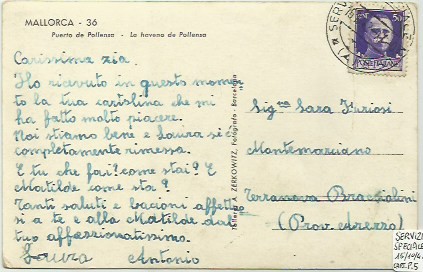 MALLORCA - 36
Puerto de Pollensa - La havena de Pollensa
Carissima zia.
Ho ricevuto in questo momen
to la tua cartolina che mi
ha fatto molto piacere.
Noi stiamo bene e Laura si è
completamente rimessa.
E tu che fai? come stai? E
Matilde come sta?
Tanti saluti e bacioni affettuo
si a te e alla Matilde dal
tuo affezionatissimo.
Laura Antonio
A. ZERKOWITZ, Fotógrafo - Barcelona
Sig.ra Sara Furiosi
Montemarciano
Terranova Bracciolini
(Prov. Arezzo)
POSTE ITALIANE
SERVIZI
SPECIALE
P.5